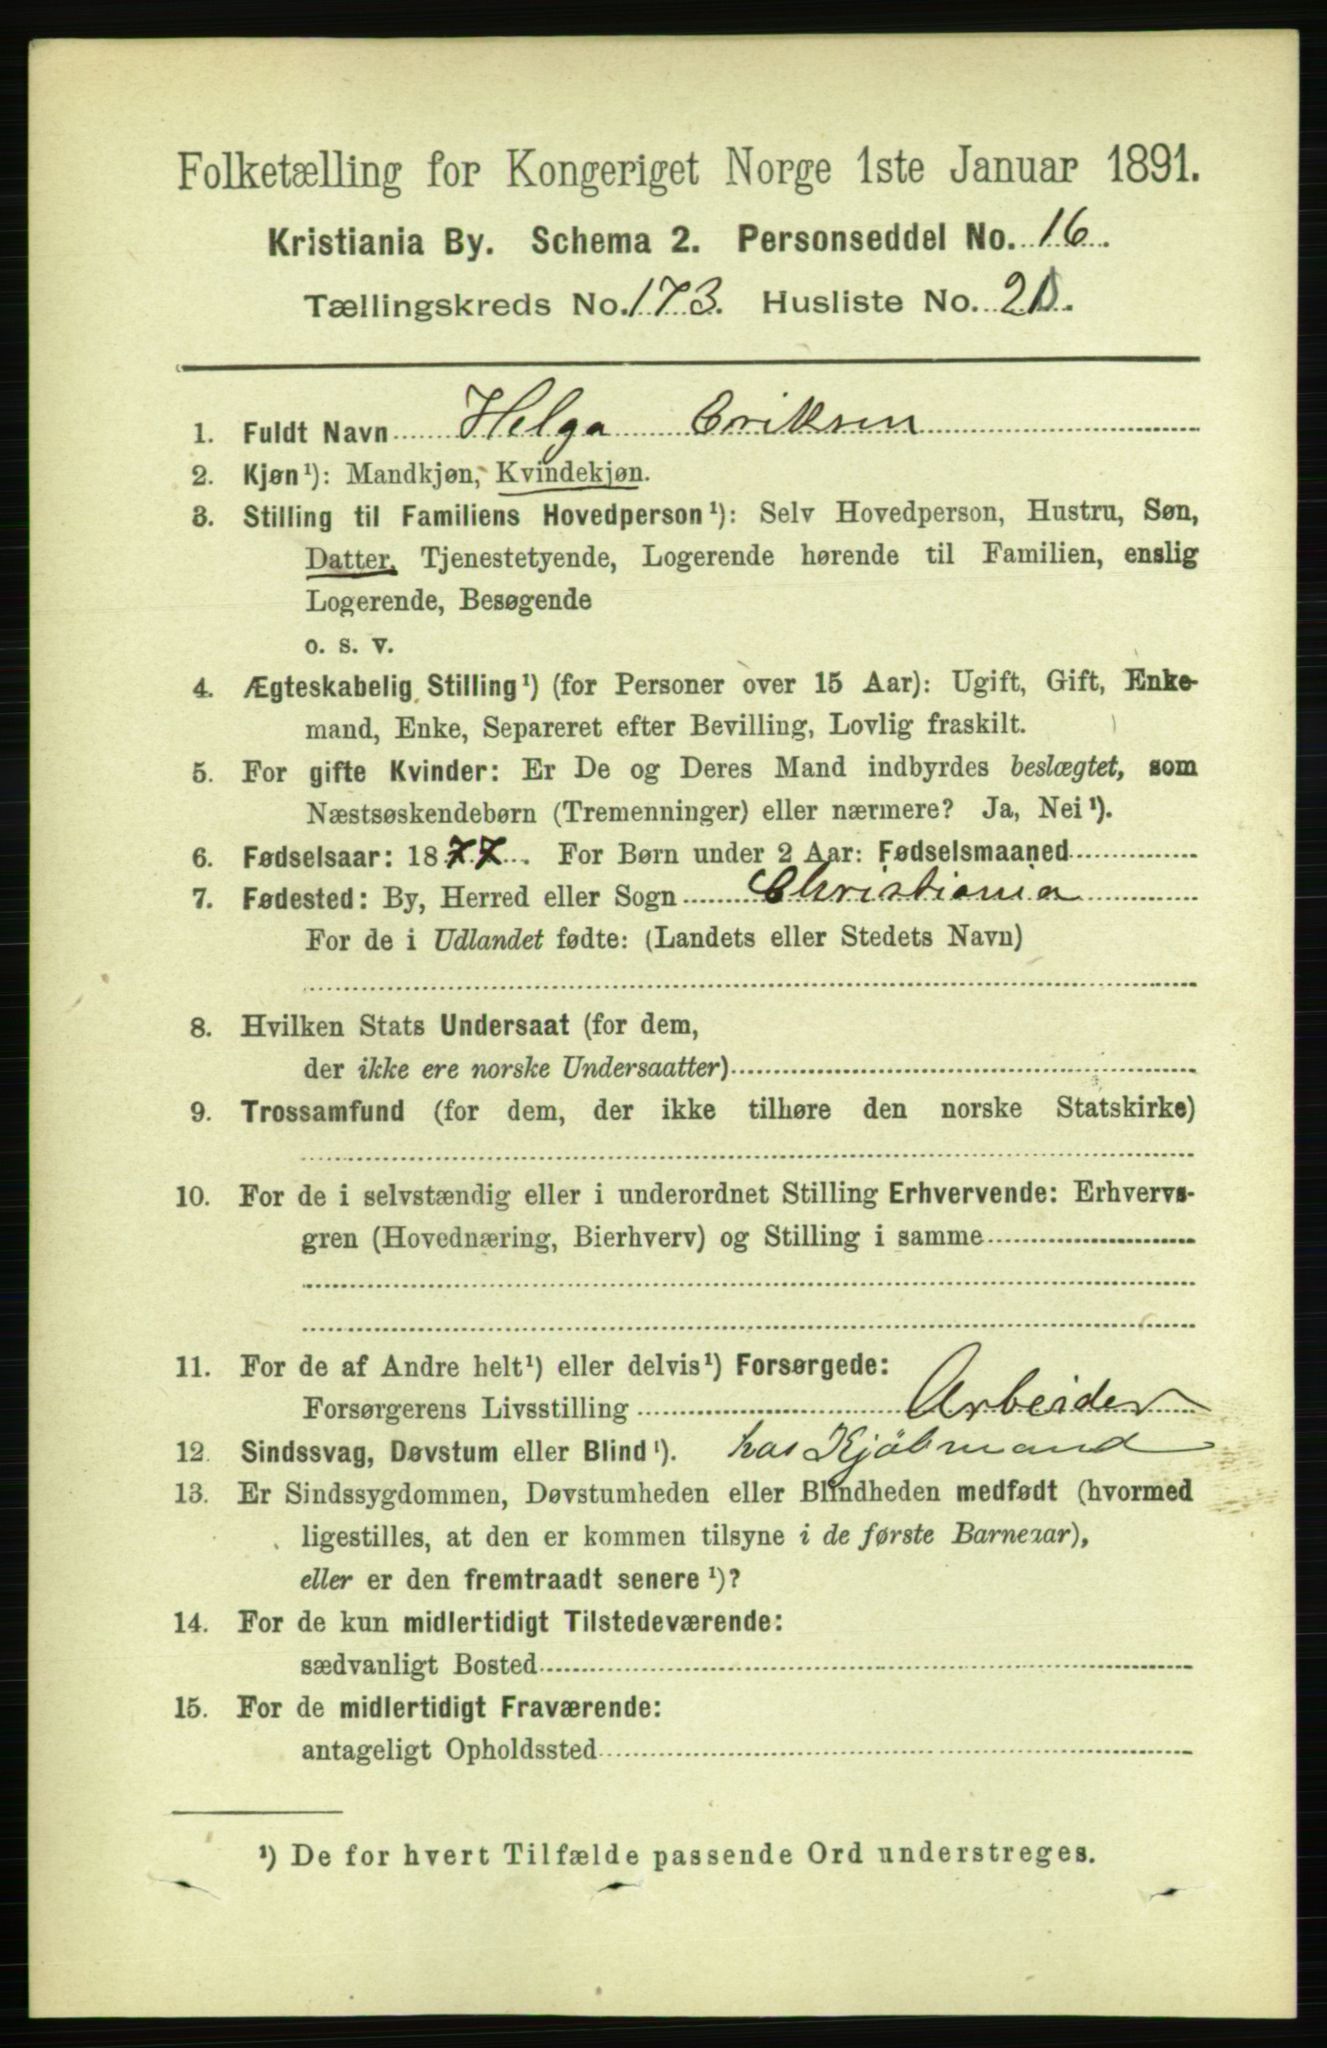 Folketælling for Kongeriget Norge 1ste Januar 1891.
Kristiania By. Schema 2. Personseddel No. 16.
Tællingskreds No. 173. Husliste No.
1. Fuldt Navn Helga Eriksen
2. Kjøn¹): Mandkjøn, Kvindekjøn.
3. Stilling til Familiens Hovedperson¹): Selv Hovedperson, Hustru, Søn,
Datter, Tjenestetyende, Logerende hørende til Familien, enslig
Logerende, Besøgende
o. s. v.
4. Ægteskabelig Stilling¹) (for Personer over 15 Aar): Ugift, Gift, Enke-
mand, Enke, Separeret efter Bevilling, Lovlig fraskilt.
5. For gifte Kvinder: Er De og Deres Mand indbyrdes beslægtet, som
Næstsøskendebørn (Tremenninger) eller nærmere? Ja, Nei¹).
6. Fødselsaar: 1877. For Børn under 2 Aar: Fødselsmaaned
7. Fødested: By, Herred eller Sogn Christiania
For de i Udlandet fødte: (Landets eller Stedets Navn)
8. Hvilken Stats Undersaat (for dem,
der ikke ere norske Undersaatter)
9. Trossamfund (for dem, der ikke tilhøre den norske Statskirke)
10. For de i selvstændig eller i underordnet Stilling Erhvervende: Erhvervs-
gren (Hovednæring, Bierhverv) og Stilling i samme
11. For de af Andre helt¹) eller delvis¹) Forsørgede:
Forsørgerens Livsstilling Arbeider
12. Sindssvag, Døvstum eller Blind¹). hos Kjøbmand
13. Er Sindssygdommen, Døvstumheden eller Blindheden medfødt (hvormed
ligestilles, at den er kommen tilsyne i de første Barneaar),
eller er den fremtraadt senere¹)?
14. For de kun midlertidigt Tilstedeværende:
sædvanligt Bosted
15. For de midlertidigt Fraværende:
antageligt Opholdssted
¹) De for hvert Tilfælde passende Ord understreges.